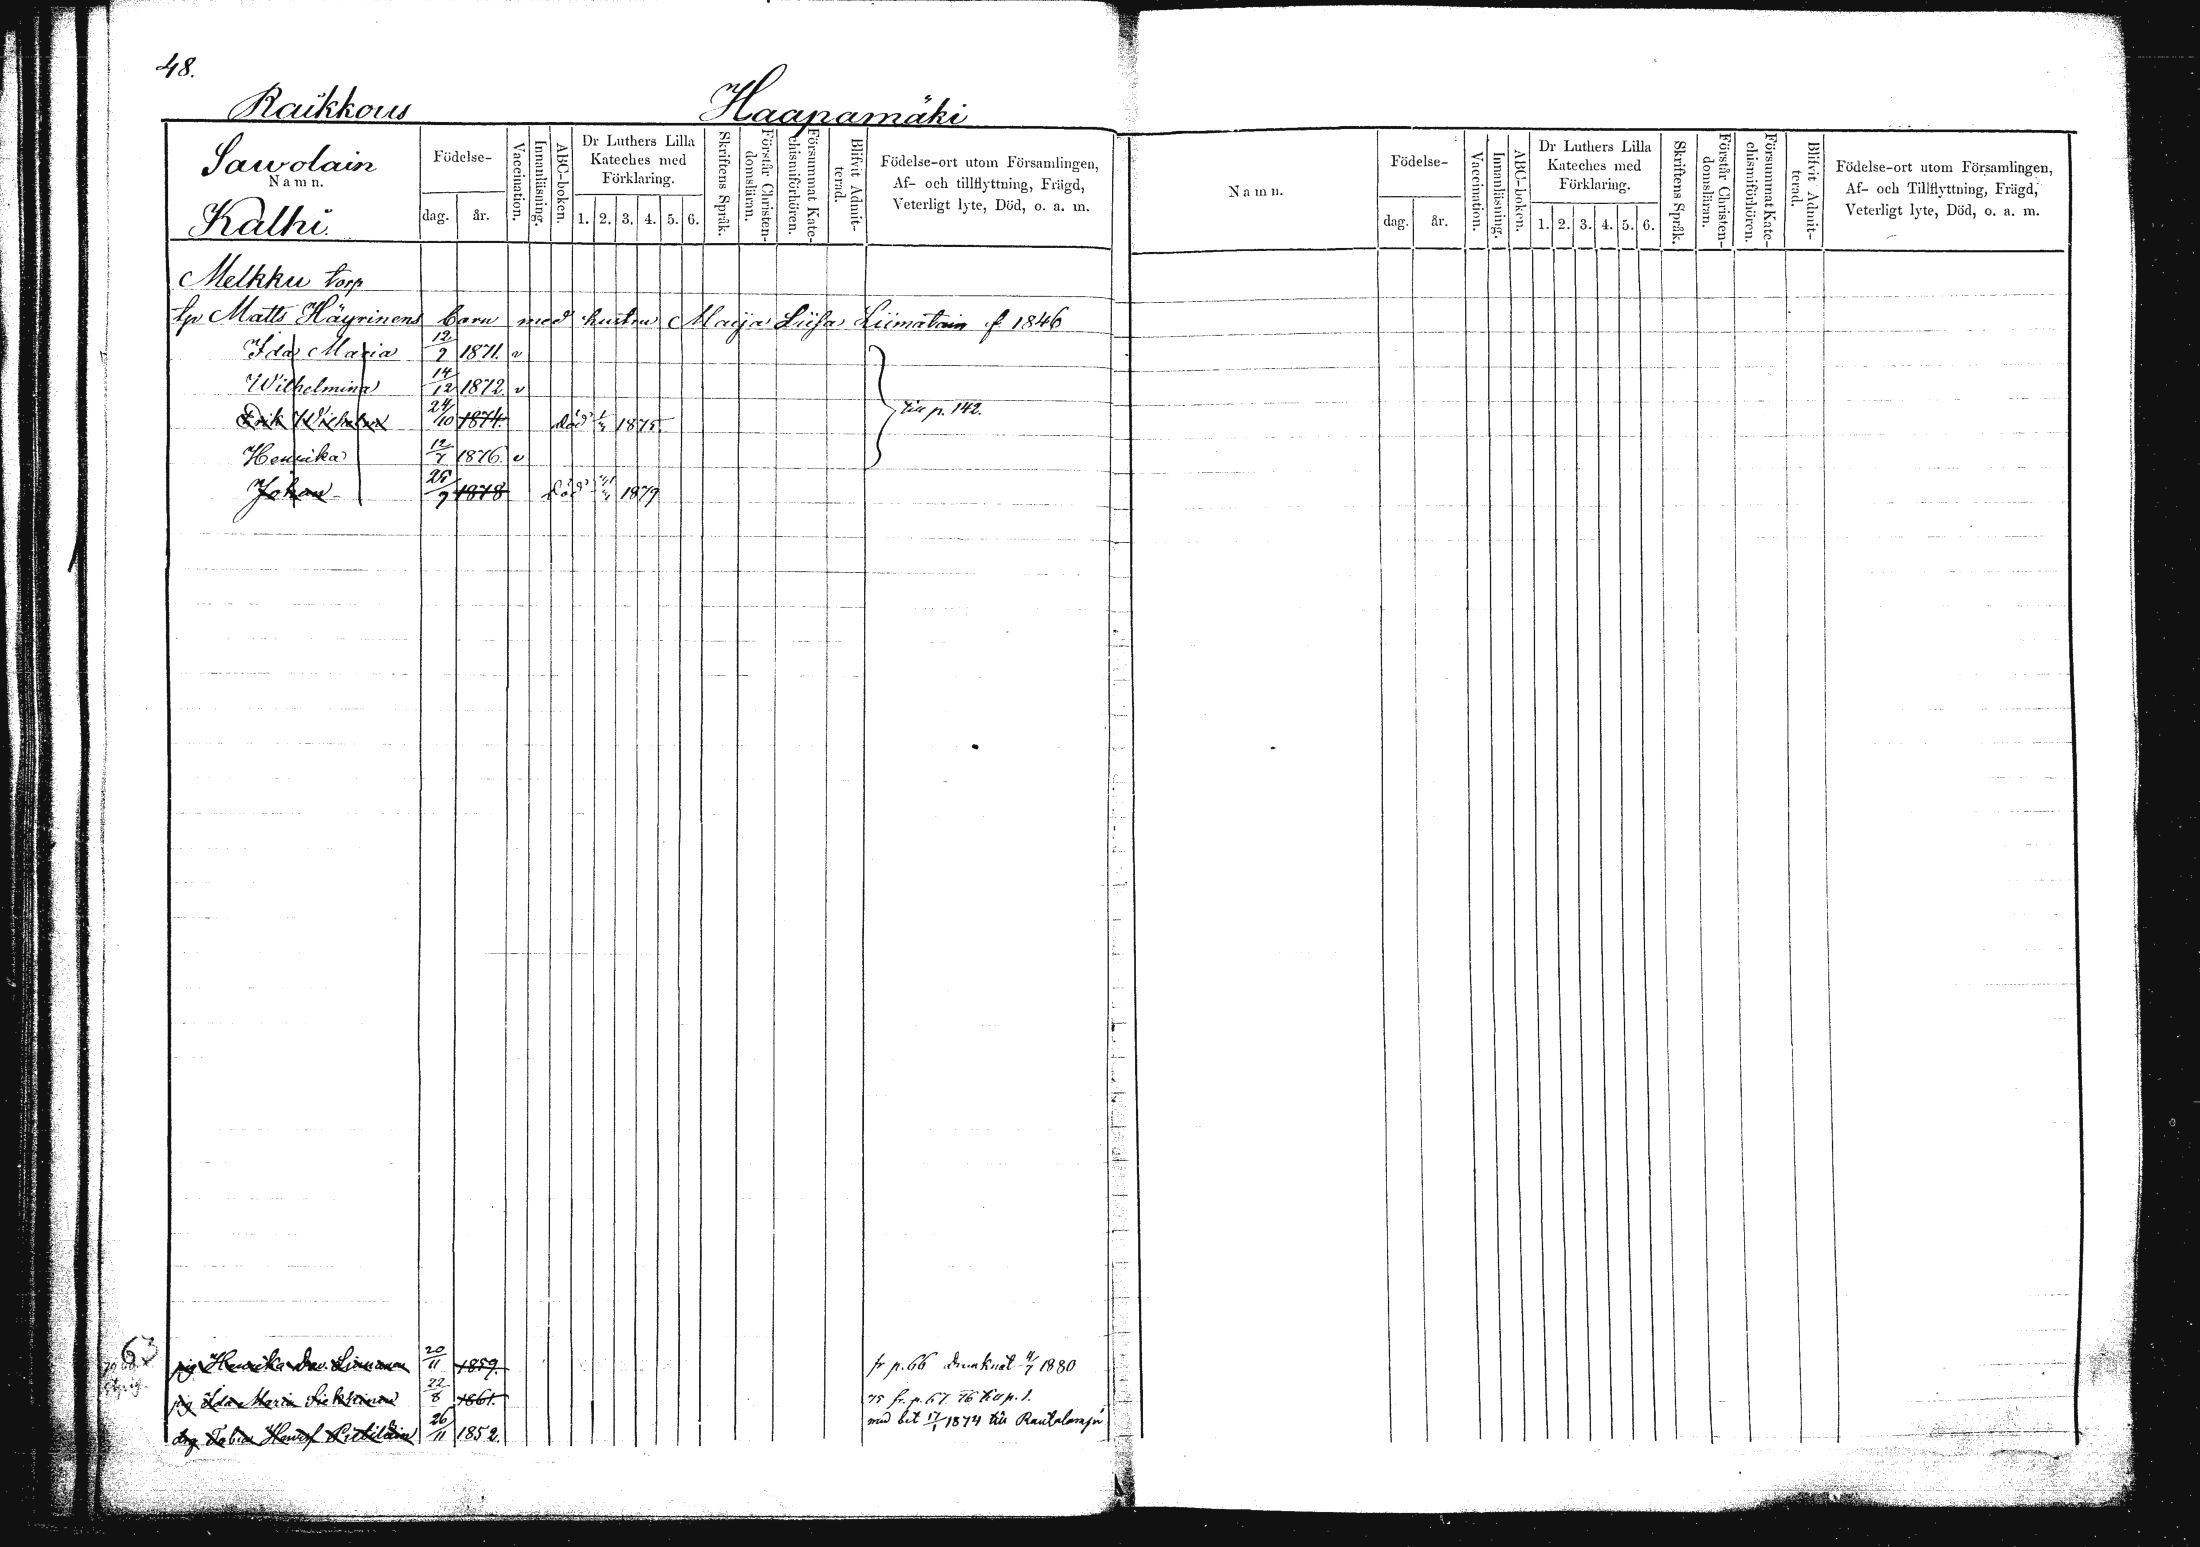 48.
Raikkous Haapamäki
Sawolain
Namn.
Kalhi.
Födelse-
dag. år.
Vaccination.
Innanläsning.
ABC-boken.
Dr Luthers Lilla
Kateches med
Förklaring.
1. 2. 3. 4. 5. 6.
Skriftens Språk.
Förstår Christen-
domsläran.
Försummat Kate-
chismiförhören.
Blifvit Admit-
terad.
Födelse-ort utom Församlingen,
Af- och tillflyttning, Frägd,
Veterligt lyte, Död, o. a. m.
Melkku torp
Matts Häyrinens barn med hustru Maija Liisa Liimatain f 1846
Ida Maria 12/9 1871. v
Wilhelmina 14/12 1872. v
Erik Wilhelm 24/10 1874. död 1875. till p. 142.
Henrika 12/7 1876. v
Johan 25/9 1878 död 1879
63
pig Henrika Dav. Liimatain 20/11 1859. fr p. 66 drunknat 4/7 1880
pig Ida Maria 22/8 1861. 75 fr. p. 67. 76 till p. 1.
drg Tobias 26/11 1852. med bet 17/1 1874 till Rautalampi
Namn.
Födelse-
dag. år.
Vaccination.
Innanläsning.
ABC-boken.
Dr Luthers Lilla
Kateches med
Förklaring.
1. 2. 3. 4. 5. 6.
Skriftens Språk.
Förstår Christen-
domsläran.
Försummat Kate-
chismiförhören.
Blifvit Admit-
terad.
Födelse-ort utom Församlingen,
Af- och Tillflyttning, Frägd,
Veterligt lyte, Död, o. a. m.